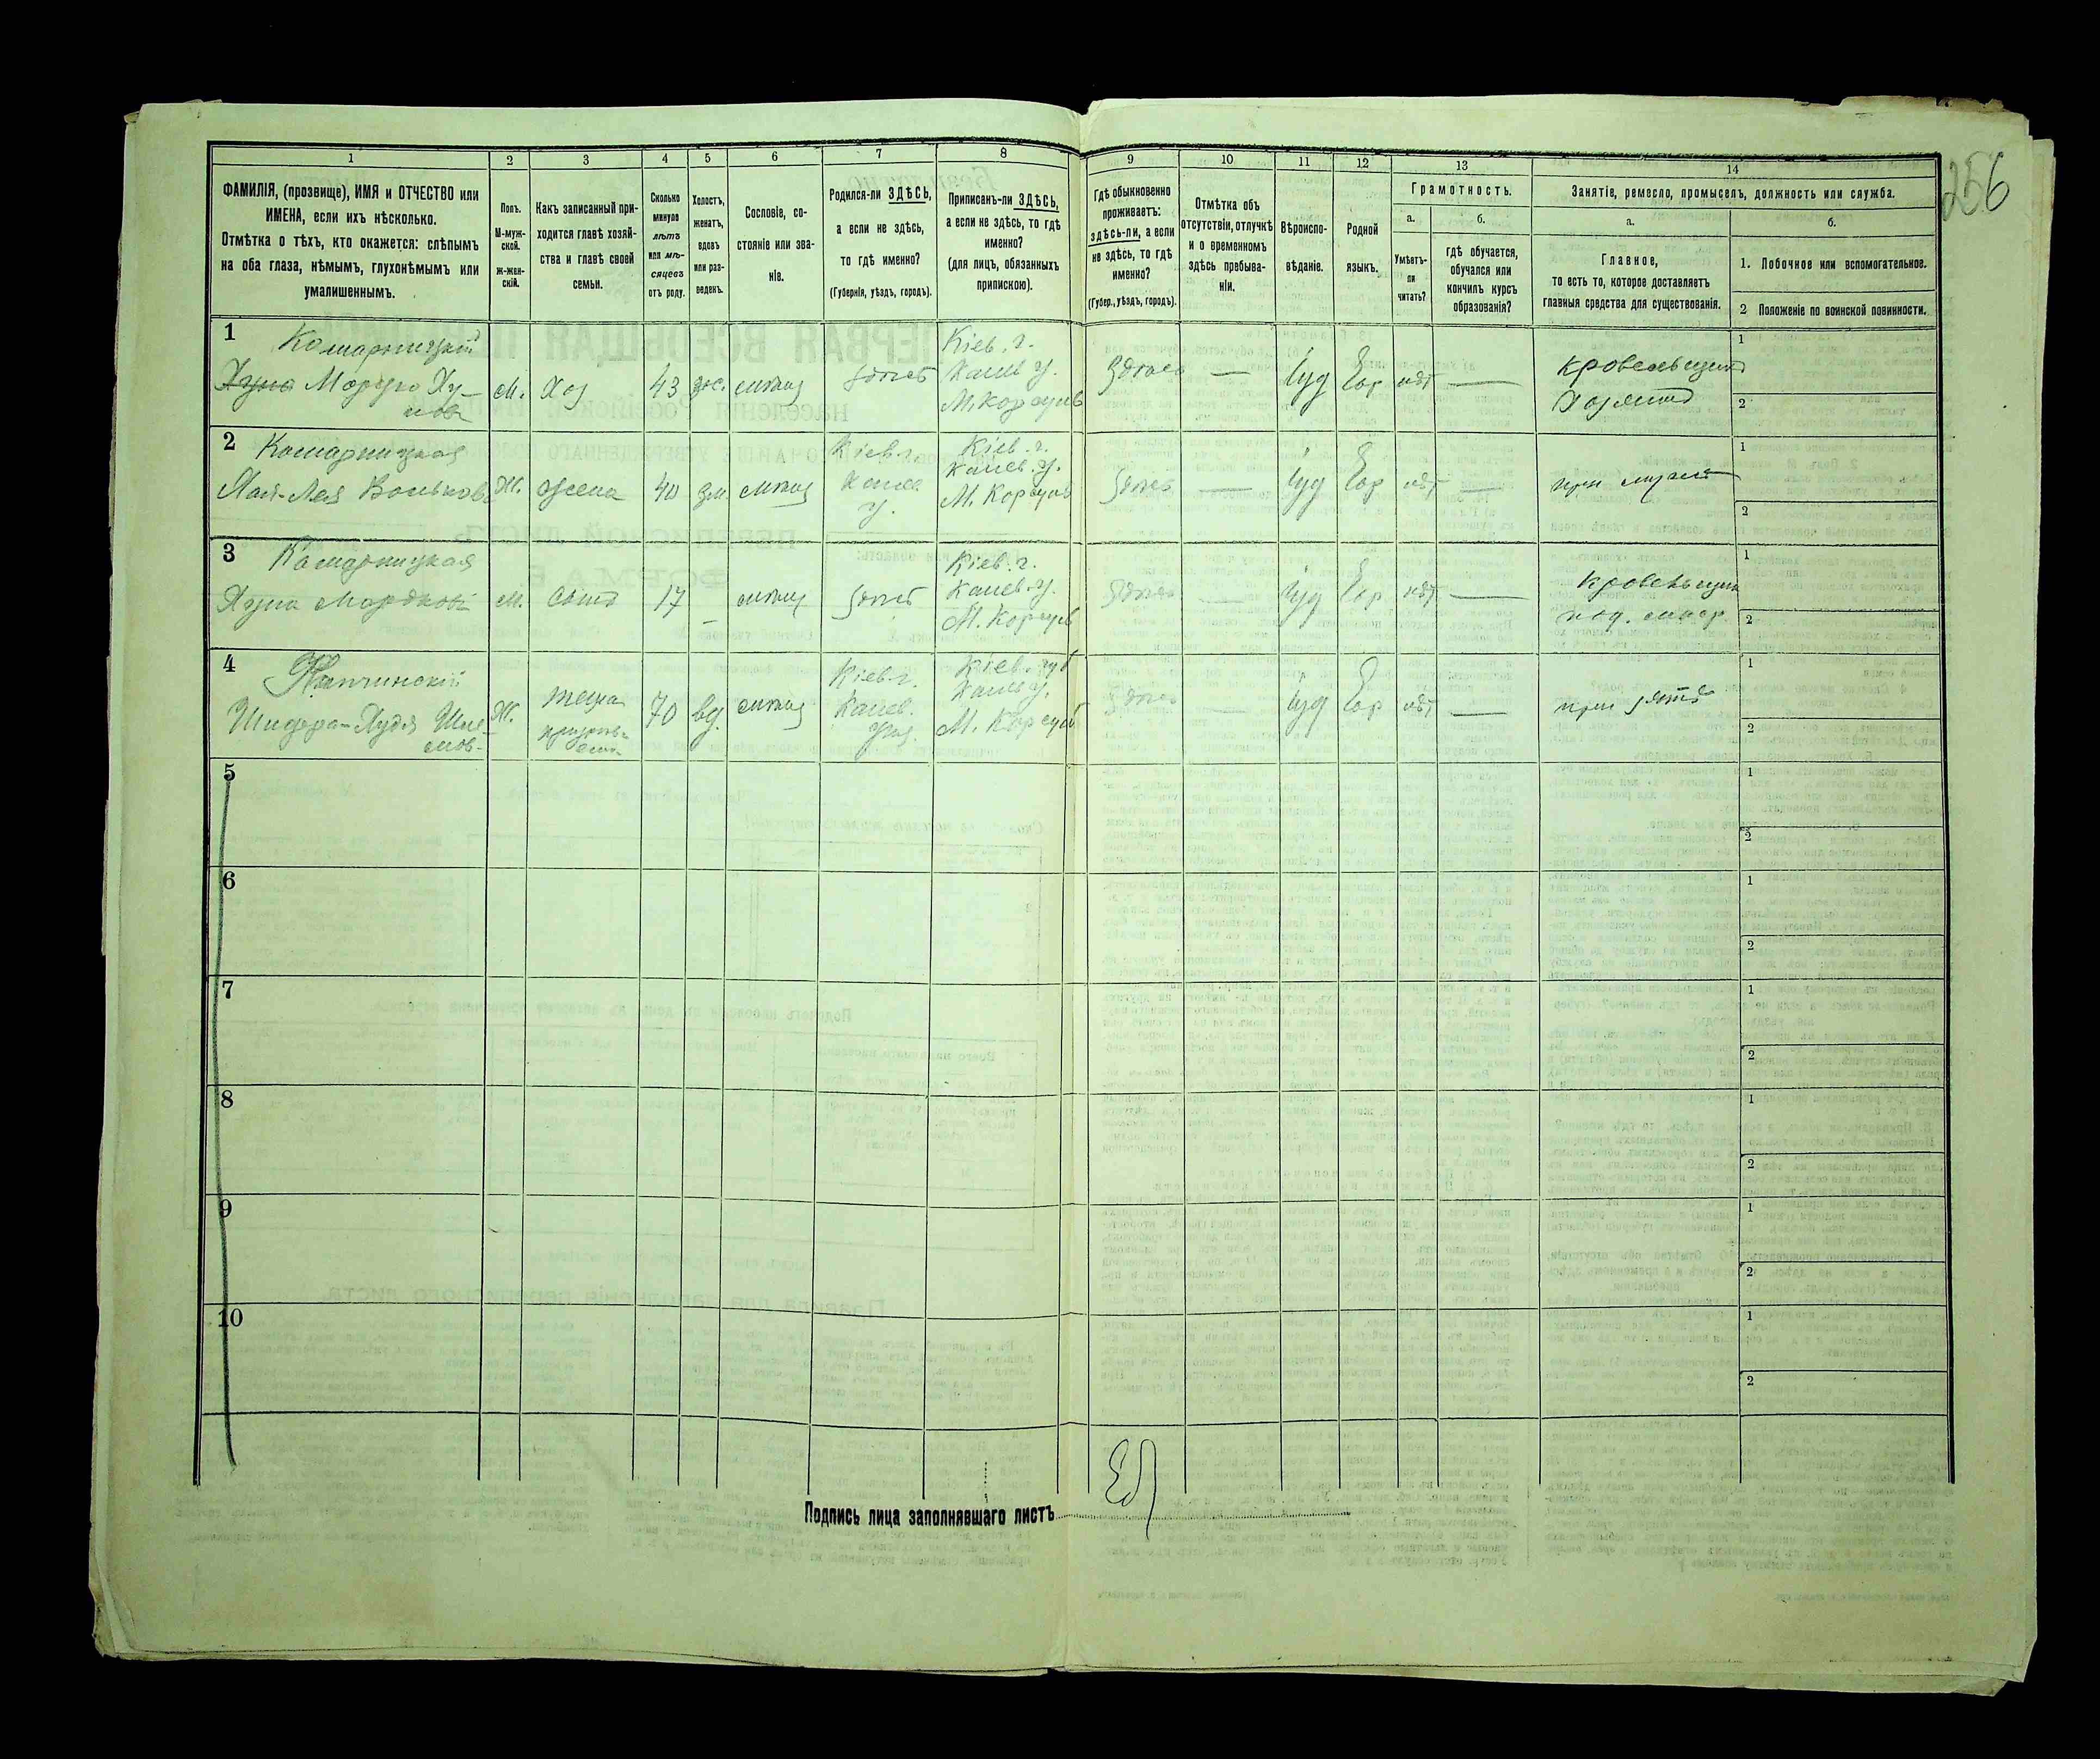 256
1 2 3 4 5 6 7 8 9 10 11 12 13 14
ФАМИЛІЯ, (прозвище), ИМЯ и ОТЧЕСТВО или
ИМЕНА, если ихъ нѣсколько.
Отмѣтка о тѣхъ, кто окажется: слѣпымъ
на оба глаза, нѣмымъ, глухонѣмымъ или
умалишеннымъ.
Полъ.
М-муж-
ской.
ж-жен-
скій.
Какъ записанный при-
ходится главѣ хозяй-
ства и главѣ своей
семьи.
Сколько
минуло
лѣтъ
или мѣ-
сяцевъ
отъ роду.
Холостъ,
женатъ,
вдовъ
или раз-
веденъ.
Сословіе, со-
стояніе или зва-
ніе.
Родился-ли ЗДѢСЬ,
а если не здѣсь,
то гдѣ именно?
(Губернія, уѣздъ, городъ).
Приписанъ-ли ЗДѢСЬ,
а если не здѣсь, то гдѣ
именно?
(для лицъ, обязанныхъ
припискою).
Гдѣ обыкновенно
проживаетъ:
здѣсь-ли, а если
не здѣсь, то гдѣ
именно?
(Губер., уѣздъ, городъ).
Отмѣтка объ
отсутствіи, отлучкѣ
и о временномъ
здѣсь пребыва-
ніи.
Вѣроиспо-
вѣданіе.
Родной
языкъ.
Грамотность.
а.
Умѣетъ-
ли
читать?
б.
гдѣ обучается,
обучался или
кончилъ курсъ
образованія?
Занятіе, ремесло, промыселъ, должность или служба.
а.
Главное,
то есть то, которое доставляетъ
главныя средства для существованія.
б.
1. Побочное или вспомогательное.
2 Положеніе по воинской повинности.
1
Комарницкій
Мордко Ху-
нов
м.
Хоз
43
мѣщ
Здѣсь
Кіев. г.
Канев. у.
М. Корсунь
Здѣсь
—
Іуд
Евр
нѣт
—
кровельщикъ
хозяинъ
1
2
2
Комарницкая
Ж.
жена
40
зм.
мѣщ
Кіев. г.
Канев.
у.
Кіев. г.
Канев. у.
М. Корсунь
Здѣсь
—
Іуд
Евр
нѣт
—
при мужѣ
1
2
3
Комарницкая
Мордков
м.
Сынъ
17
—
мѣщ
Здѣсь
Кіев. г.
Канев. у.
М. Корсунь
Здѣсь
—
Іуд
Евр
нѣт
—
кровельщик
под. мастр.
1
2
4
Ж.
теща
70
вд.
мѣщ
Кіев. г.
Канев.
уѣз.
Кіев. губ
Канев. у.
М. Корсунь
Здѣсь
—
Іуд
Евр
нѣт
—
при зятѣ
1
2
5
1
2
6
1
2
7
1
2
8
1
2
9
1
2
10
1
2
Подпись лица заполнявшаго листъ